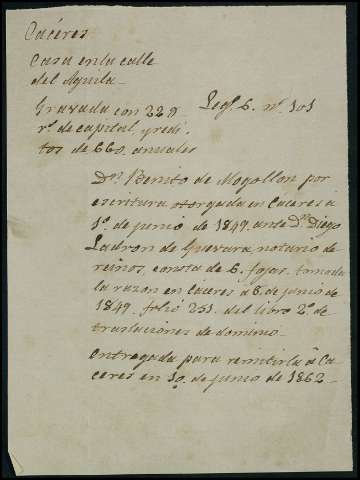 Cáceres
Casa en la calle
del Aguila
Gravada con 220 Legº 6. nº 101
rs. de capital, y redi
tos de 660. anuales
Dn. Benito de Mogollon por
escritura otorgada en Caceres á
1º. de junio de 1849. ante Dn. Diego
Ladron de Guevara notario de
reinos, consta de 6. fojas. tomada
la razon en Caceres á 8. de junio de
1849. folio 251. del libro 2º. de
traslaciones de dominio
entregada para remitirla á Ca
ceres en 10. de junio de 1862